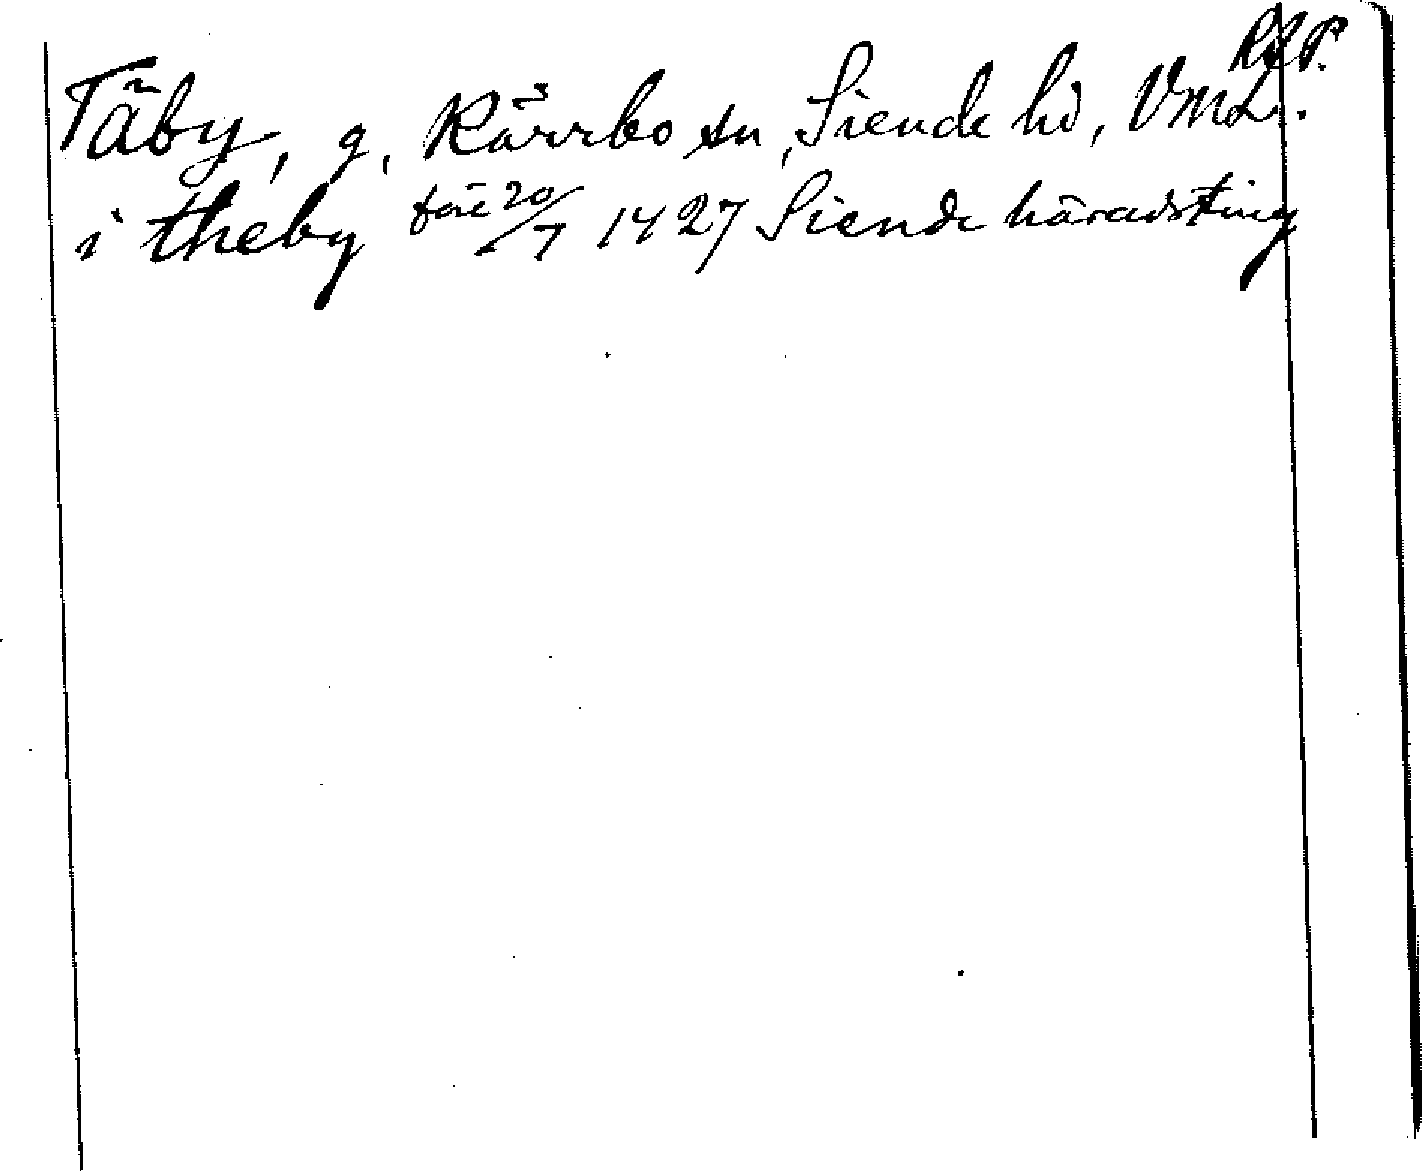 RAP.
Täby, g, Kärrbo sn, Siende hd, VmL.
i theby före 20/7 1427 Siende häradsting